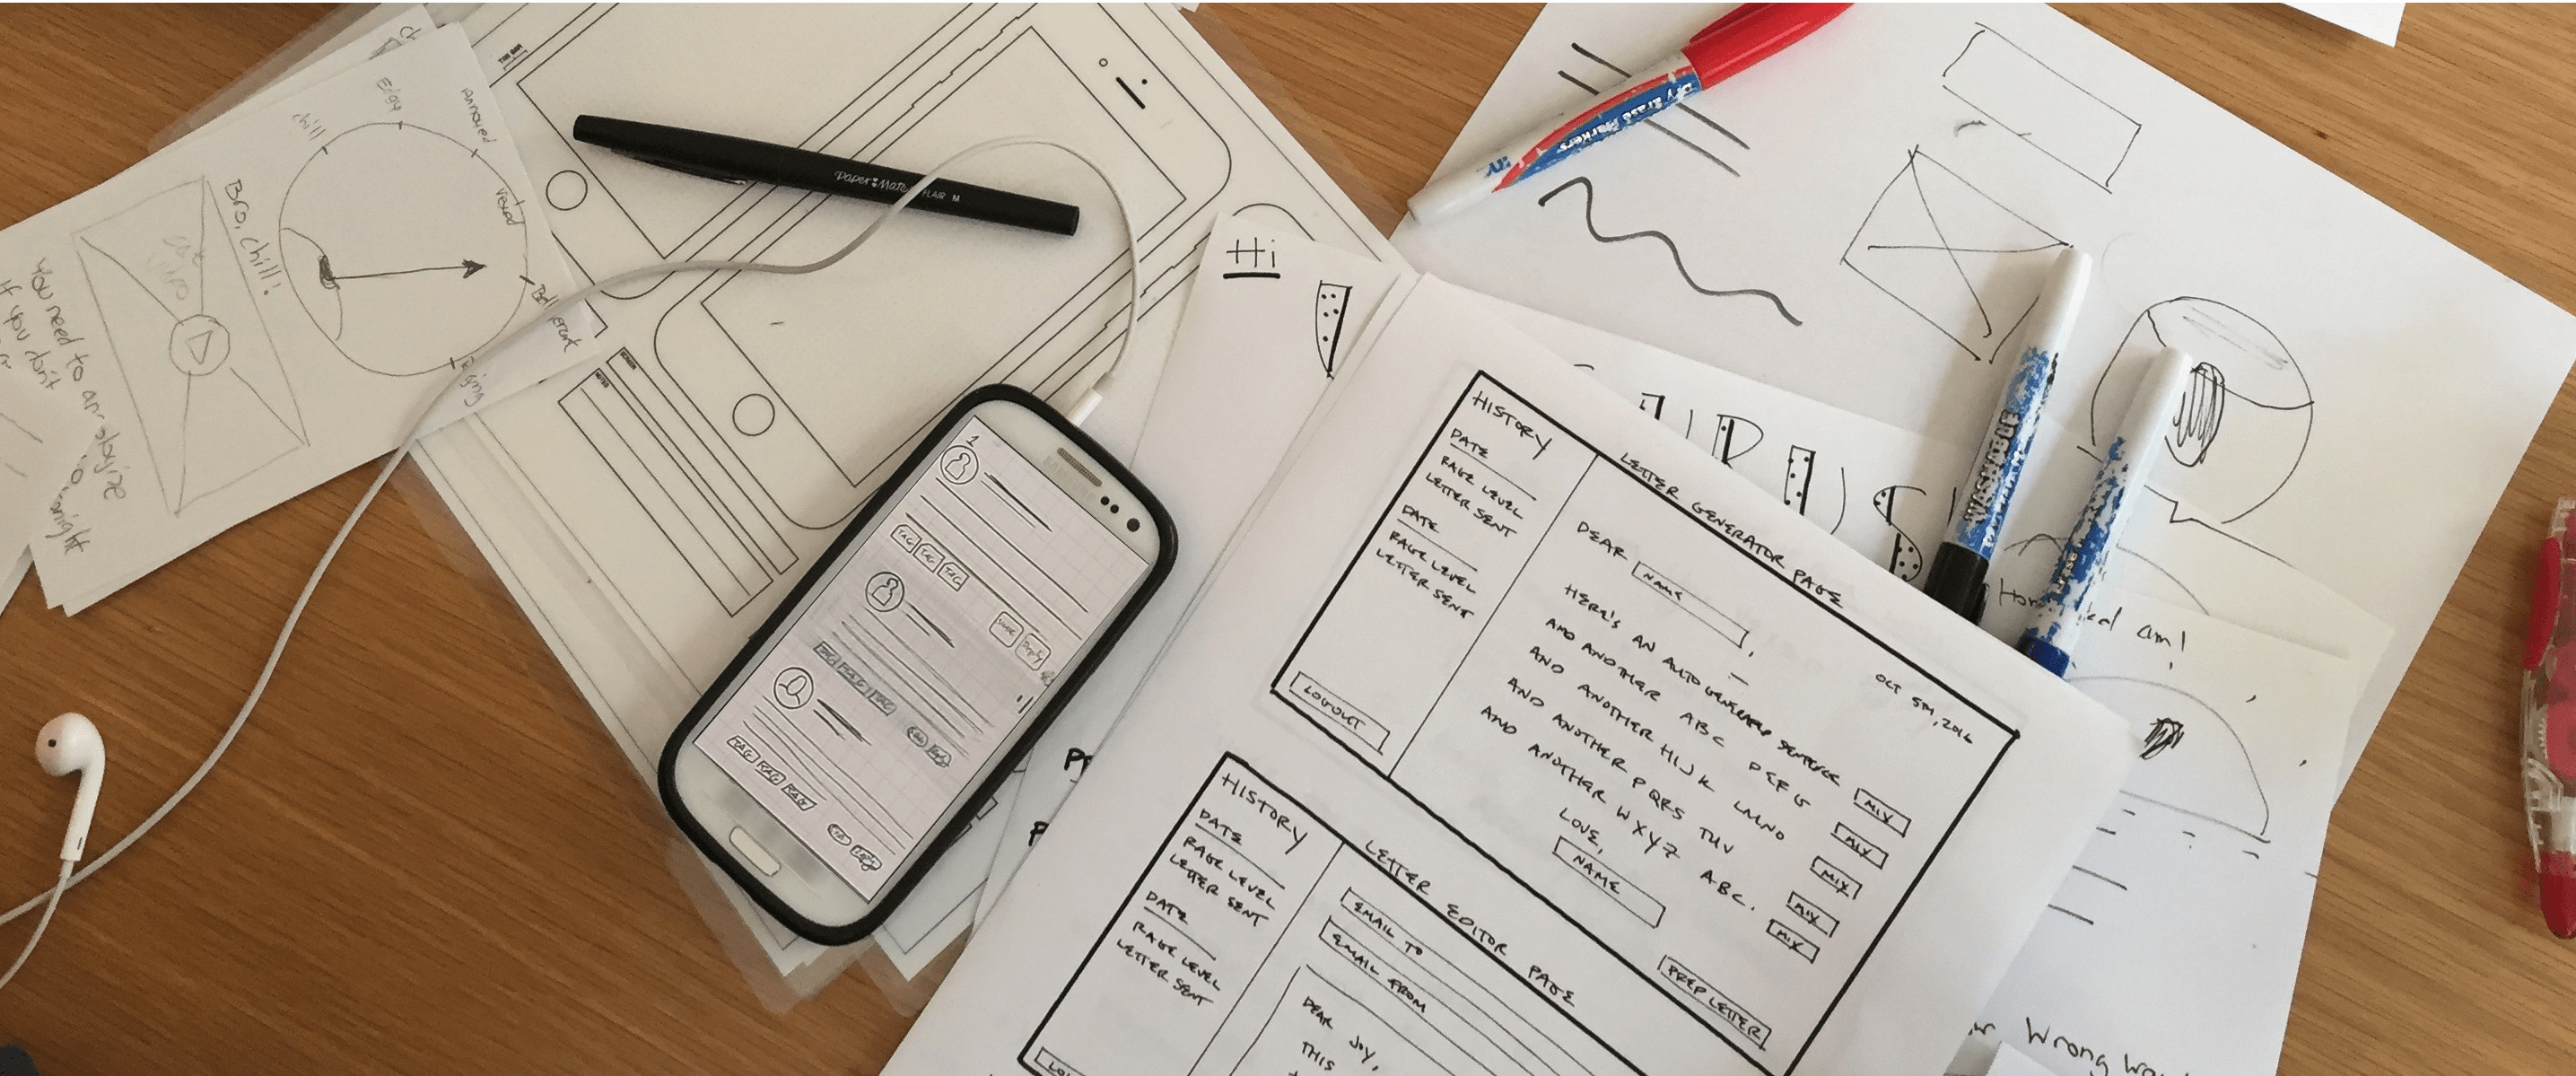 Edgy
Annoyed
chill
vexed
Raging
Bro, chill!
You need to apologize
If you don't
TAG TAG TAG
TAG TAG TAG
TAG TAG TAG
Reply
Paper Mate FLAIR M
Dry Erase Markers
WASHABLE
Hi
HISTORY
DATE
RAGE LEVEL
LETTER SENT
DATE
RAGE LEVEL
LETTER SENT
LOGOUT
LETTER GENERATOR PAGE
OCT 5TH, 2016
DEAR NAME,
HERE'S AN AUTO GENERATED SENTENCE MIX
AND ANOTHER ABC DEFG MIX
AND ANOTHER HIJK LMNO MIX
AND ANOTHER PQRS TUV MIX
AND ANOTHER WXYZ ABC. MIX
LOVE,
NAME
PREP LETTER
HISTORY
DATE
RAGE LEVEL
LETTER SENT
DATE
RAGE LEVEL
LETTER SENT
LETTER EDITOR PAGE
EMAIL TO
EMAIL FROM
DEAR JOY,
THIS
am!
Wrong